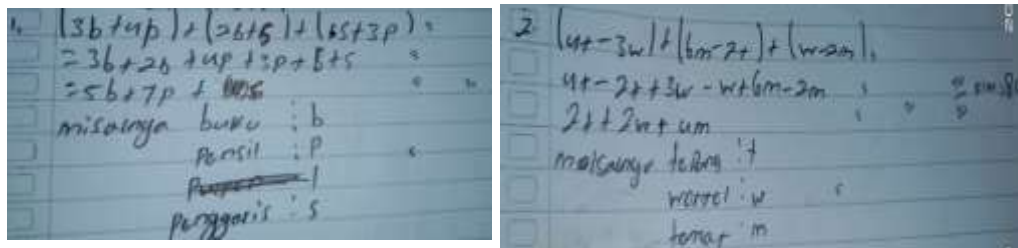 1. (3b+4p)+(2b+5)+(6s+3p)
= 3b+2b+4p+3p+5+s
= 5b+7p+
misalnya buku : b
pensil : p
: l
penggaris : s
2 (4t-3w)+(6m-2t)+(w-2m)
4t-2t+3w-w+6m-2m
2t+2w+4m
terong : t
wortel : w
tomat : m